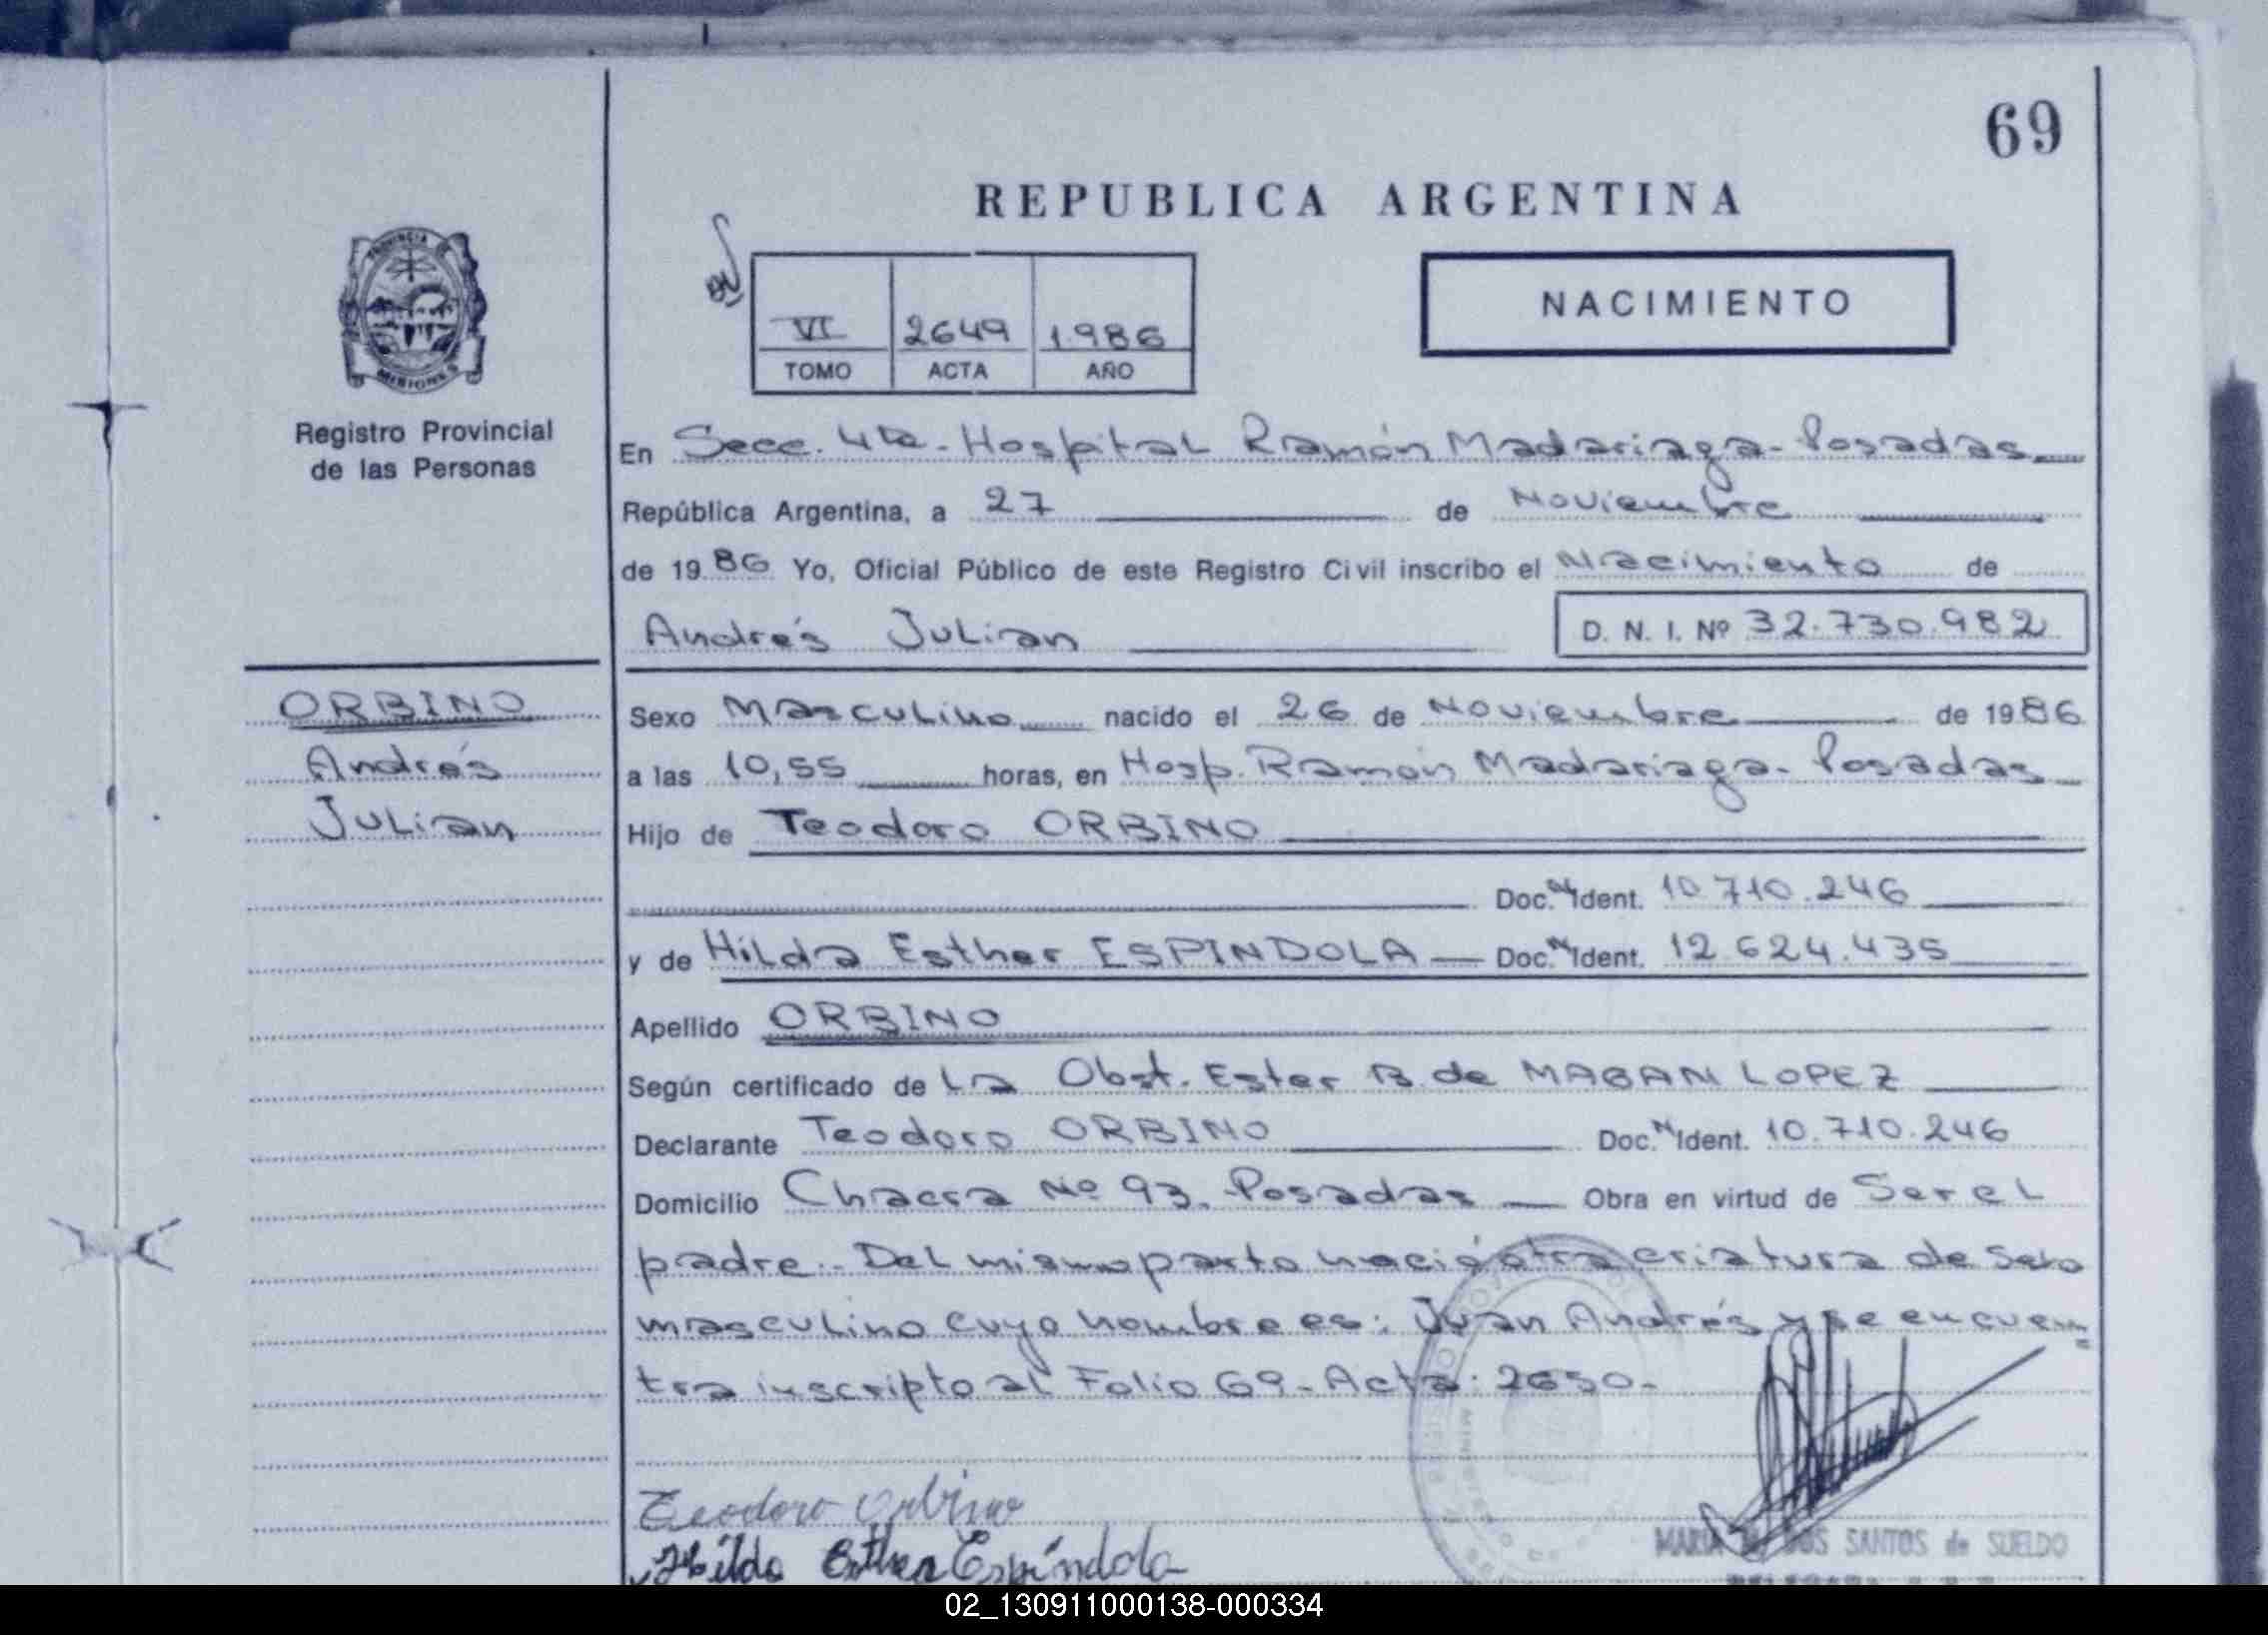 69
REPUBLICA ARGENTINA
PROVINCIA DE
MISIONES
VI 2649 1.986
TOMO ACTA AÑO
NACIMIENTO
Registro Provincial
de las Personas
En Secc. 4ta - Hospital Ramón Madariaga - Posadas
República Argentina, a 27 de Noviembre
de 1986 Yo, Oficial Público de este Registro Civil inscribo el Nacimiento de
Andrés Julian
D. N. I. Nº 32.730.982
ORBINO
Andrés
Julian
Sexo Masculino nacido el 26 de Noviembre de 1986
a las 10,55 horas, en Hosp. Ramón Madariaga - Posadas
Hijo de Teodoro ORBINO
Doc. N. Ident. 10.710.246
y de Hilda Esther ESPINDOLA — Doc. N. Ident. 12.624.435
Apellido ORBINO
Según certificado de La Obst. Ester B. de MABAN LOPEZ
Declarante Teodoro ORBINO Doc. N. Ident. 10.710.246
Domicilio Chacra Nº 93. Posadas — Obra en virtud de Ser el
padre.- Del mismo parto nació otra criatura de sexo
masculino cuyo nombre es: Juan Andrés y se encuen=
tra inscripto al Folio 69 - Acta: 2650 -
Teodoro Orbino
Hilda Esther Espíndola
MARIA DOS SANTOS de SUELDO
02_130911000138-000334